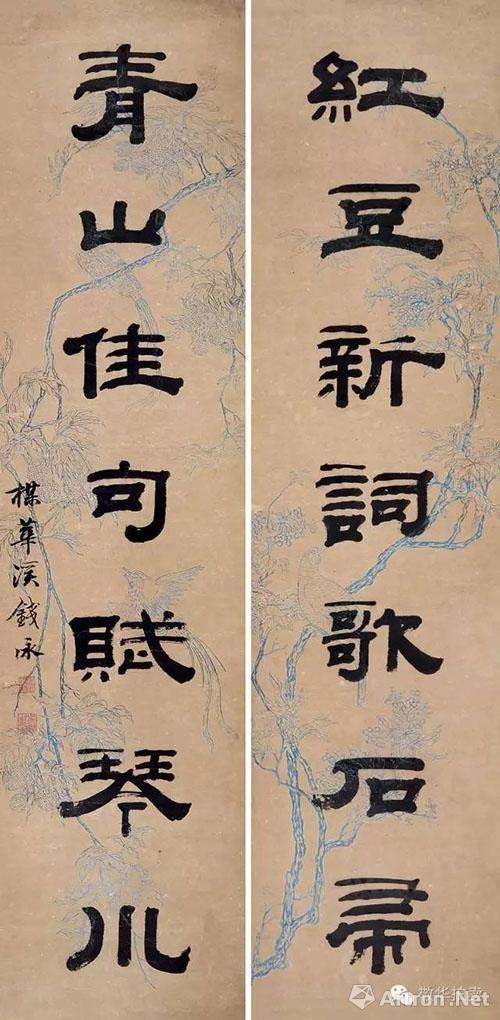 紅豆新詞歌石帚
青山佳句賦琴川
楳華溪錢泳
敬华拍卖
Artron.Net